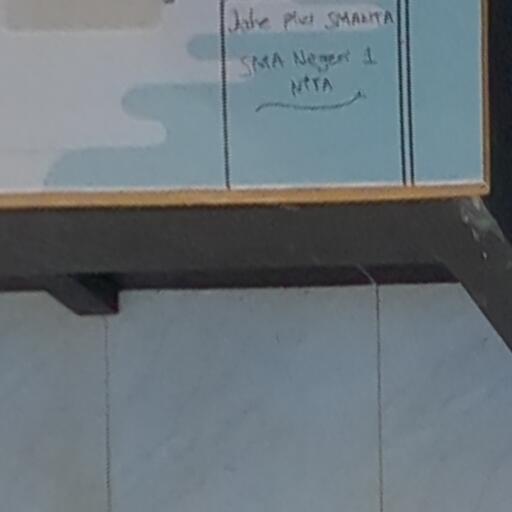 Jahe Plus SMANITA
SMA Negeri 1
NITA